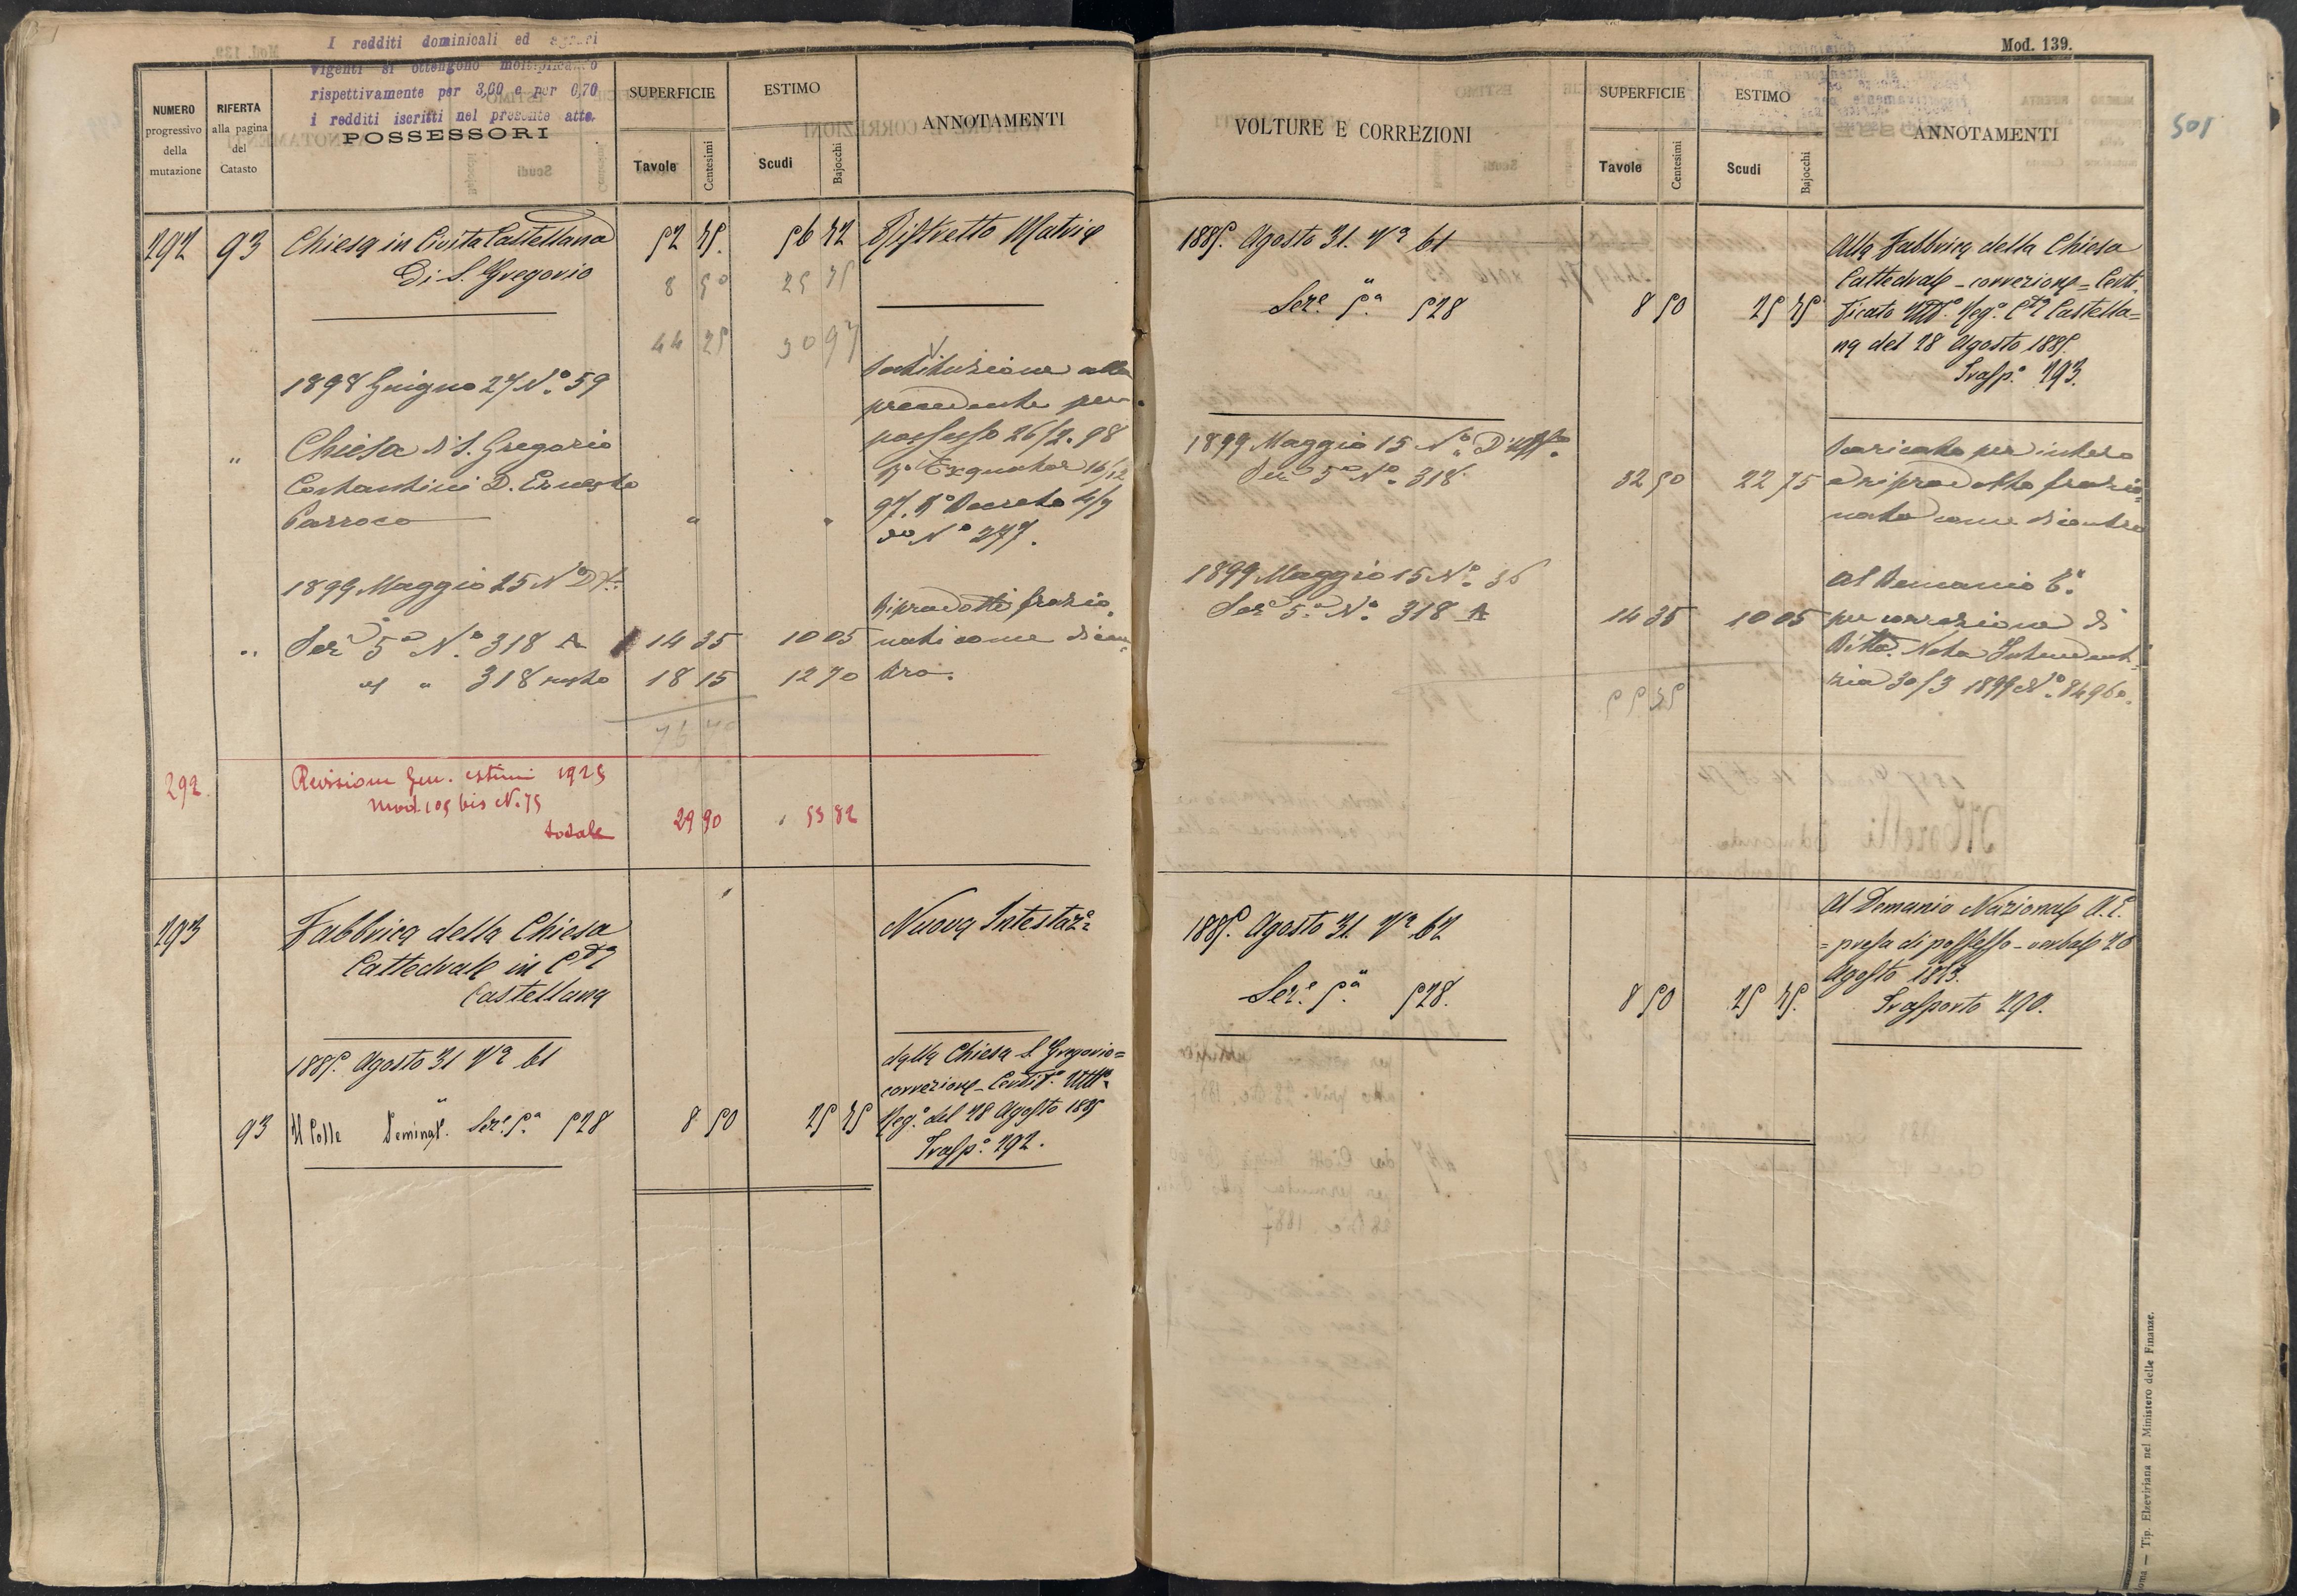 I redditi dominicali ed agrari
vigenti si ottengono moltiplicando
rispettivamente per 3,60 e per 0,70
i redditi iscritti nel presente atto.
NUMERO
progressivo
della
mutazione
RIFERTA
alla pagina
del
Catasto
POSSESSORI
SUPERFICIE
Tavole
Centesimi
ESTIMO
Scudi
Bajocchi
ANNOTAMENTI
292 93 Chiesa in Civita Castellana 52 75. 56 72 Ristretto Matrice
Di S. Gregorio
8 50 25 75
44 25 30 97
1898 Giugno 27 N.º 59
Sostituzione alla
precedente per
possesso 26/2.98
" Chiesa di S. Gregorio
Rº Exequatur 16/12
Costantini D. Ernesto
97. Rº Decreto 4/9
Parroco " "
Nº 277.
1899 Maggio 25 Nº
Riprodotti frazio
" Ser.e 5.a N.º 318 A 14 35 10 05 nati come dicon
" " 318 resto 18 15 12 70 tro.
76 70
292. Revisione Gen. estimi 1925
Mod. 105 bis N. 75
totale 29 90 53 82
293 Fabbrica della Chiesa Nuova Intestaz.e
Cattedrale in C.ta
Castellana
1885. Agosto 31 Nº 61
dalla Chiesa S. Gregorio =
correzione - Certif.º
93 Il Colle Seminat. Ser.e 5.a 528 8 50 25 75 Reg.º del 28 Agosto 1885
Trasp.º 292.
Mod. 139.
501
VOLTURE E CORREZIONI
SUPERFICIE
Tavole
Centesimi
ESTIMO
Scudi
Bajocchi
ANNOTAMENTI
1885. Agosto 31. Nº 61
Alla Fabbrica della Chiesa
Cattedrale - correzione = Certi
Ser.e 5.a 528 8 50 25 75 ficato Reg.º C.ta Castella=
na del 28 Agosto 1885.
Trasp.º 293.
1899 Maggio 15 Nº D'Uffº
Scaricato per intero
Ser.e 5.a Nº. 318 32 50 22 75 e riprodotto frazio
nato come dicontro
1899 Maggio 15 Nº. 36
Al Demanio
Ser.e 5.a Nº. 318 A 14 35 10 05 per correzione di
Ditta. Nota Intendent
zia 30/3 1899 Nº. 84960.
55 35
1885. Agosto 31. Nº 62
Al Demanio Nazionale
= presa di possesso - verbale 20
Agosto 1873.
Ser.e 5.a 528. 8 50 25 75. Trasporto 290.
oma — Tip. Elzeviriana nel Ministero delle Finanze.